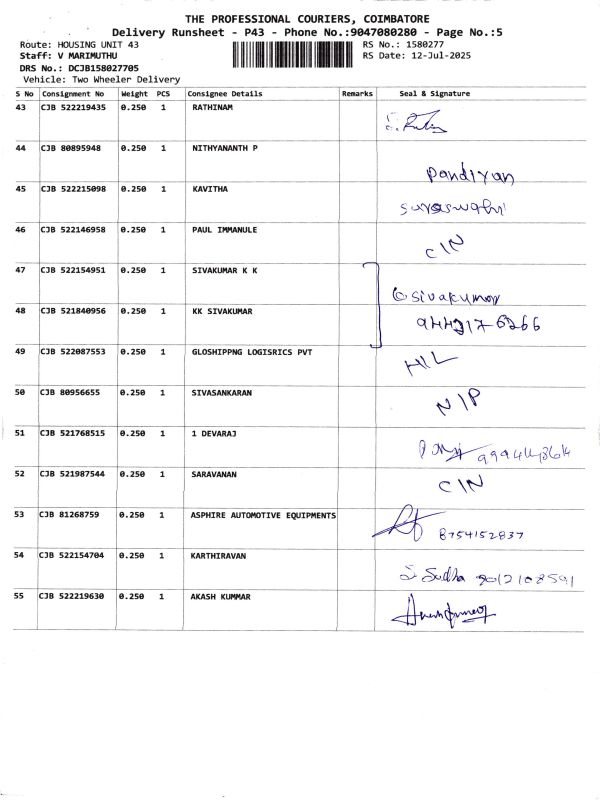 THE PROFESSIONAL COURIERS, COIMBATORE
Delivery Runsheet - P43 - Phone No.:9047080280 - Page No.:5
Route: HOUSING UNIT 43
RS No.: 1580277
Staff: V MARIMUTHU
RS Date: 12-Jul-2025
DRS No.: DCJB158027705
Vehicle: Two Wheeler Delivery
S No Consignment No Weight PCS Consignee Details Remarks Seal & Signature
43 CJB 522219435 0.250 1 RATHINAM
44 CJB 80895948 0.250 1 NITHYANANTH P
Pandiyan
45 CJB 522215098 0.250 1 KAVITHA
suraswathi
46 CJB 522146958 0.250 1 PAUL IMMANULE
C/N
47 CJB 522154951 0.250 1 SIVAKUMAR K K
Sivakumar
48 CJB 521840956 0.250 1 KK SIVAKUMAR
9442176266
49 CJB 522087553 0.250 1 GLOSHIPPNG LOGISRICS PVT
H/L
50 CJB 80956655 0.250 1 SIVASANKARAN
N/P
51 CJB 521768515 0.250 1 1 DEVARAJ
52 CJB 521987544 0.250 1 SARAVANAN
C/N
53 CJB 81268759 0.250 1 ASPHIRE AUTOMOTIVE EQUIPMENTS
8754152837
54 CJB 522154704 0.250 1 KARTHIRAVAN
S. Sudha 9012108591
55 CJB 522219630 0.250 1 AKASH KUMMAR